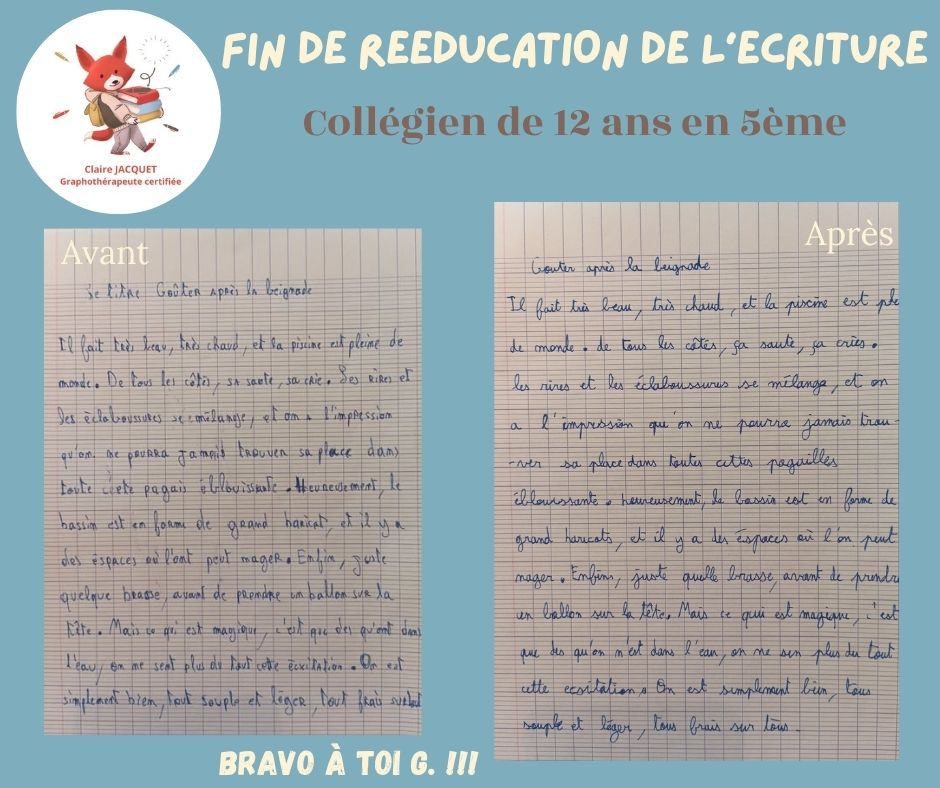 FIN DE REEDUCATION DE L'ECRITURE
Collégien de 12 ans en 5ème
Claire JACQUET
Graphothérapeute certifiée
Avant
Le titre Goûter après la beignade
Il fait très beau, très chaud, et la piscine est pleine de
monde. De tous les côtés, sa saute, sa crie. Les rires et
les éclaboussures se mélange, et on a l'impression
qu'on ne pourra jamais trouver sa place dans
toute pagais éblouissante. Heureusement, le
bassin est en forme de grand haricat, et il y a
des éspaces où l'ont peut mager. Enfin, juste
quelque brasse, avant de prendre un ballon sur la
tête. Mais ce qui est magique, c'est que des qu'ont dans
l'eau, on ne sent plus du tout cette écxitation. On est
simplement bien, tout souple et léger, tout frais surtout
Après
Gouter après la beignade
Il fait très beau, très chaud, et la piscine est ple
de monde. de tous les côtés, ça saute, ça cries.
les rires et les éclaboussures se mélange, et on
a l'impression qu'on ne pourra jamais trou-
-ver sa place dans toutes cettes pagailles
éblouissante. heureusement, le bassin est en forme de
grand haricots, et il y a des éspaces où l'on peut
nager. Enfins, juste quelle brasse, avant de prendre
un ballon sur la tête. Mais ce qui est magique, c'est
que des qu'on n'est dans l'eau, on ne sen plus du tout
cette ecsitation. On est simplement bien, tous
souple et léger, tous frais sur tous.
BRAVO À TOI G. !!!